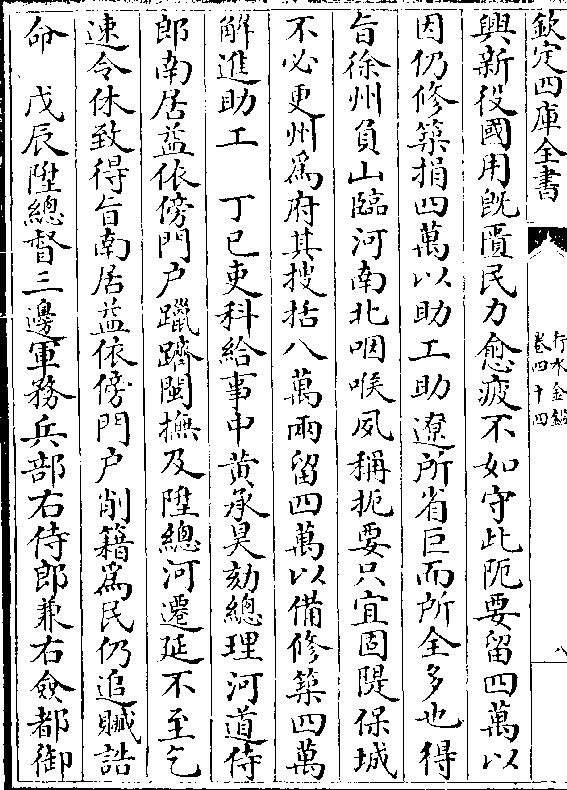 欽定四庫全書
行水金鑑
卷四十四
八
興新役國用既匱民力愈疲不如守此阨要留四萬以
因仍修築捐四萬以助工助遼所省巨而所全多也得
旨徐州負山臨河南北咽喉夙稱扼要只宜固隄保城
不必更州爲府其搜括八萬兩留四萬以備修築四萬
解進助工　丁巳吏科給事中黄承昊劾總理河道侍
郎南居益依傍門户躐躋閩撫及陞總河遷延不至乞
速令休致得旨南居益依傍門户削籍爲民仍追贓誥
命　戊辰陞總督三邊軍務兵部右侍郎兼右僉都御